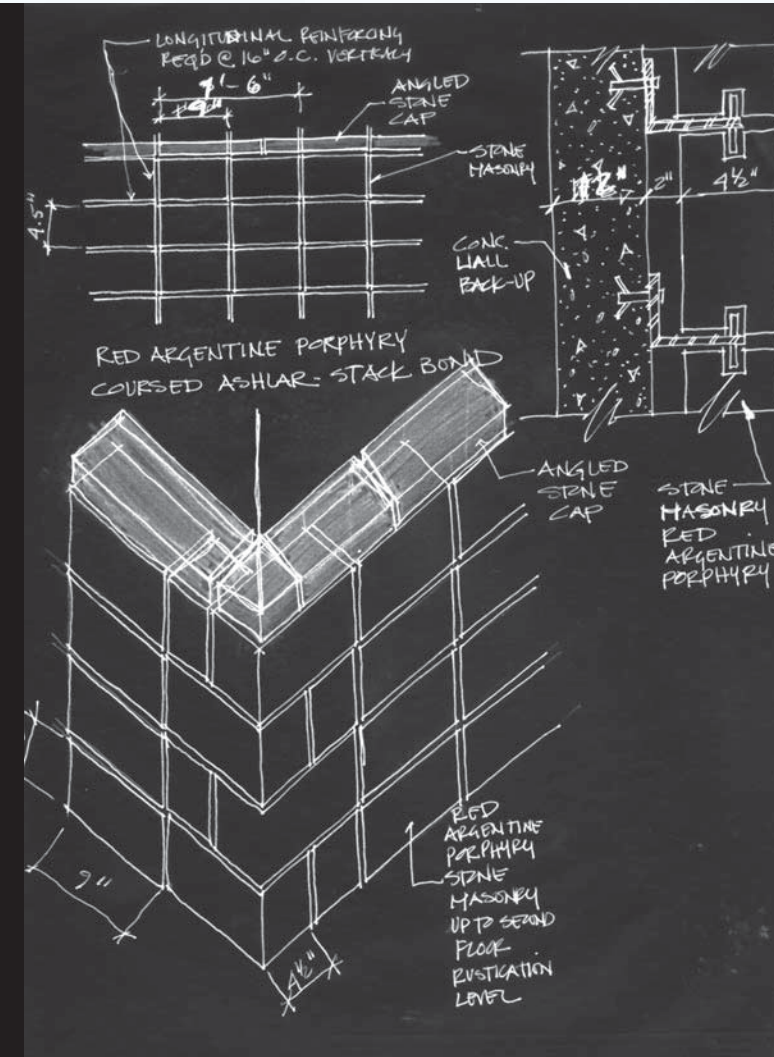 LONGITUDINAL REINFORCING
REQ'D @ 16" O.C. VERTICALY
1'-6"
9"
ANGLED
STONE
CAP
STONE
MASONRY
4.5"
RED ARGENTINE PORPHYRY
COURSED ASHLAR-STACK BOND
2"
4½"
CONC.
WALL
BACK-UP
ANGLED
STONE
CAP
STONE
MASONRY
RED
ARGENTINE
PORPHYRY
RED
ARGENTINE
PORPHYRY
STONE
MASONRY
UP TO SECOND
FLOOR
RUSTICATION
LEVEL
9"
4½"